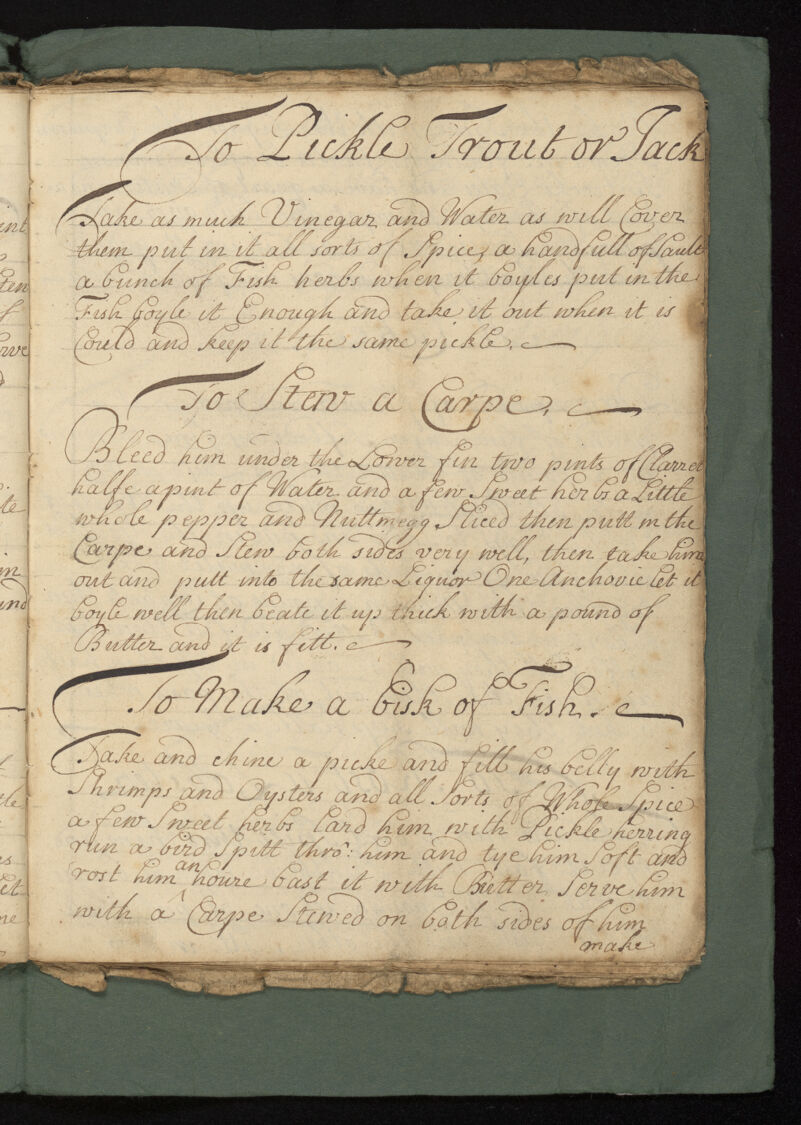 To Pickle Trout or Jack
Take as much Vinegar and Water as will Cover
them put in it all sorts of Spice, a handfull of Sault
a bunch of Fish herbs when it boyles put in the
Fish boyle it Enough and take it out when it is
Could and keep it the same pickle.
To Stew a Carpe.
Bleed him under the Lower fin two pints of Clarret
halfe a pint of Water and a few Sweet herbs a Little
whole pepper and Nuttmegg Sliced then putt in the
Carpe and Stew both sides very well, then take him
out and putt into the same Liquor One Anchovie let it
boyle well then beate it up thick with a pound of
Butter and it is fitt.
To Make a bisk of Fish.
Take and chine a picke and fill his belly with
Shrimps and Oysters and all Sorts of Whole Spice
a few Sweet herbs lard him with Pickle herring
run a bird Spitt thro: him and tye him Soft and
rost him an houre bast it with Butter Serve him
with a Carpe Stewed on both sides of him
make